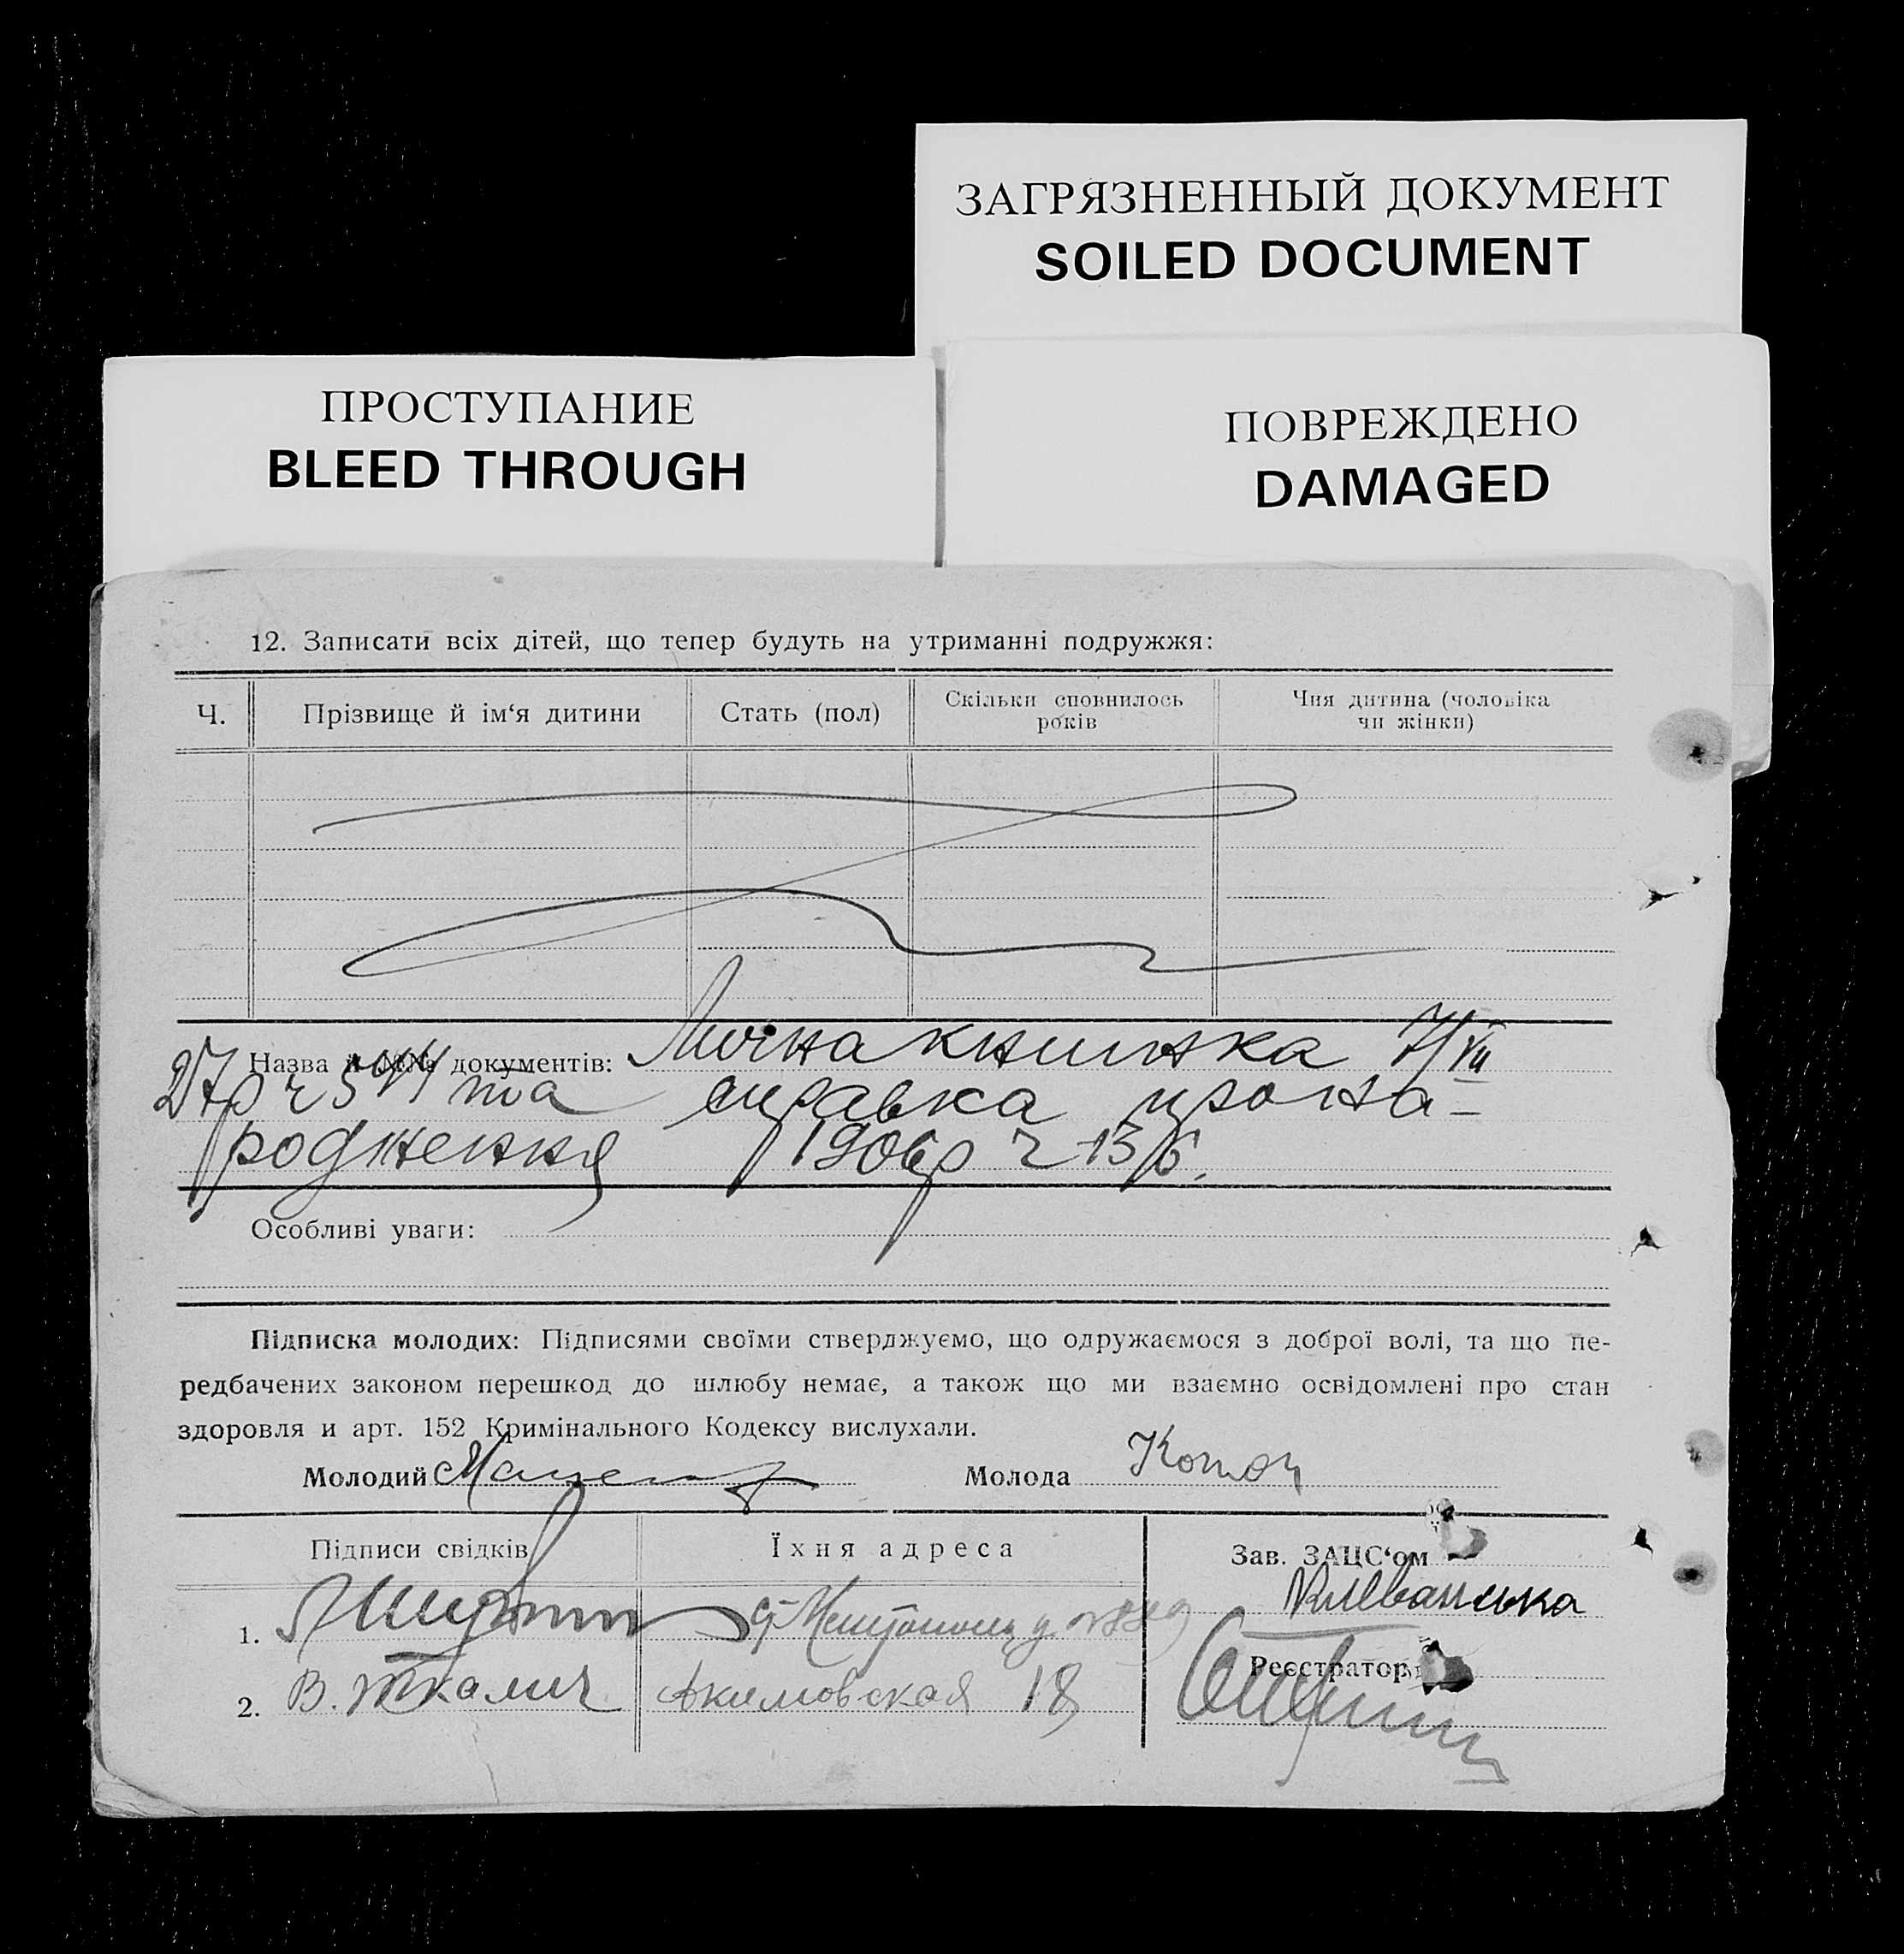 ЗАГРЯЗНЕННЫЙ ДОКУМЕНТ
SOILED DOCUMENT
ПРОСТУПАНИЕ
BLEED THROUGH
ПОВРЕЖДЕНО
DAMAGED
12. Записати всіх дітей, що тепер будуть на утриманні подружжя:
Ч. Прізвище й ім‘я дитини Стать (пол) Скільки сповнилось років Чия дитина (чоловіка чи жінки)
Назва й №№ документів: книжка 7/VII
27р ч 544 та справка про на-
родження 1906р ч 136.
Особливі уваги:
Підписка молодих: Підписями своїми стверджуємо, що одружаємося з доброї волі, та що пе-
редбачених законом перешкод до шлюбу немає, а також що ми взаємно освідомлені про стан
здоровля и арт. 152 Кримінального Кодексу вислухали.
Молодий Молода
Підписи свідків Їхня адреса Зав. ЗАЦС‘ом
1.
Реєстратор
2. В. Ткалич Акимовская 18